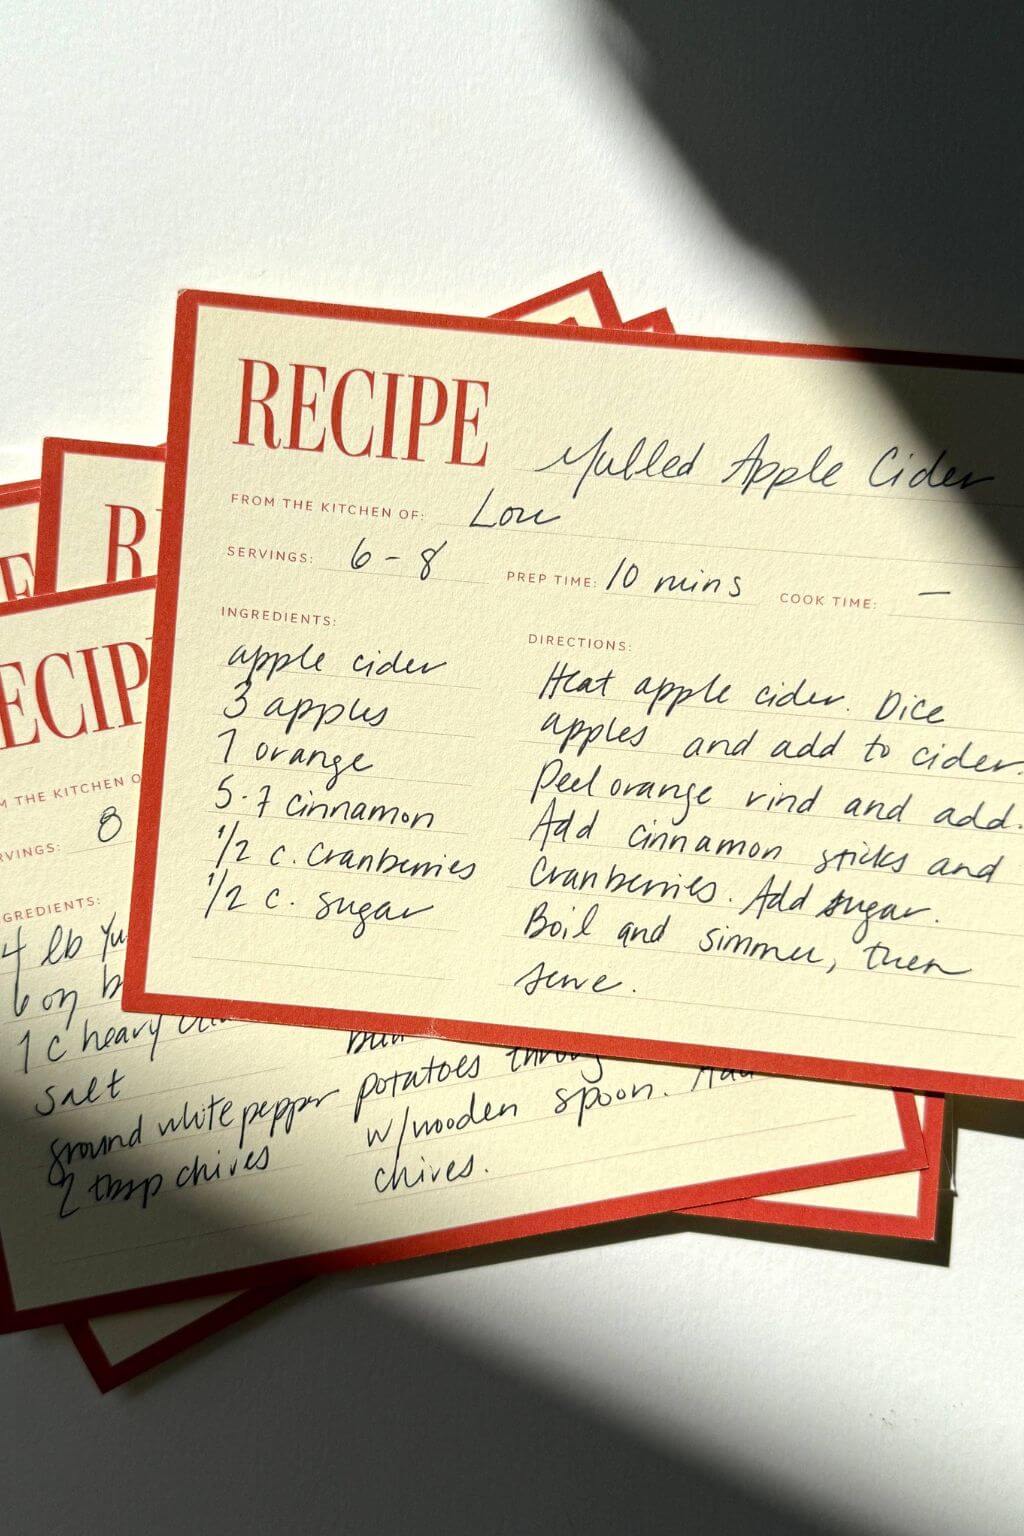 RECIPE Mulled Apple Cider
FROM THE KITCHEN OF: Lou
SERVINGS: 6-8 PREP TIME: 10 mins COOK TIME: —
INGREDIENTS:
apple cider
3 apples
1 orange
5-7 cinnamon
1/2 c. cranberries
1/2 c. sugar
DIRECTIONS:
Heat apple cider. Dice
apples and add to cider.
Peel orange rind and add.
Add cinnamon sticks and
cranberries. Add sugar.
Boil and simmer, then
serve.
R
E
ECIP
M THE KITCHEN O
RVINGS: 8
NGREDIENTS:
4 lb Yu
6 oz b
1 c heavy
salt
ground white pepper
2 tbsp chives
potatoes
w/wooden spoon.
chives.